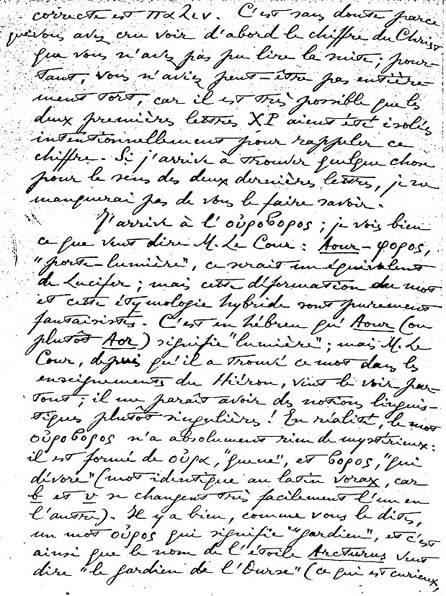 correcte est παλιν. C'est sans doute parce
que vous avez cru voir d'abord le chiffre du Christ
que vous n'avez pas pu lire la suite; pour-
tant, vous n'aviez peut-être pas entière-
ment tort, car il est très possible que les
deux premières lettres XP aient été isolés
intentionnellement pour rappeler ce
chiffre. Si j'arrive à trouver quelque chose
pour le sens des deux dernières lettres, je ne
manquerai pas de vous le faire savoir.
J'arrive à l'ουροβορος; je vois bien
ce que veut dire M. Le Cour: Aour-φορος,
"porte-lumière", ce serait un équivalent
de Lucifer; mais cette déformation du mot
et cette étymologie hybride sont purement
fantaisistes. C'est en hébreu qu'Aour (ou
plutôt Aor) signifie "lumière"; mais M. Le
Cour, depuis qu'il a trouvé ce mot dans les
enseignements du Hiéron, veut le voir par-
tout; il me paraît avoir des notions linguis-
tiques plutôt singulières! En réalité, le mot
ουροβορος n'a absolument rien de mystérieux:
il est formé de ουρα, "queue", et βορος, "qui
dévore" (mot identique au latin vorax, car
b et v se changent très facilement l'un en
l'autre). Il y a bien, comme vous le dites,
un mot ουρος qui signifie "gardien", et c'est
ainsi que le nom de l'étoile Arcturus veut
dire "le gardien de l'Ourse" (ce qui est curieux,